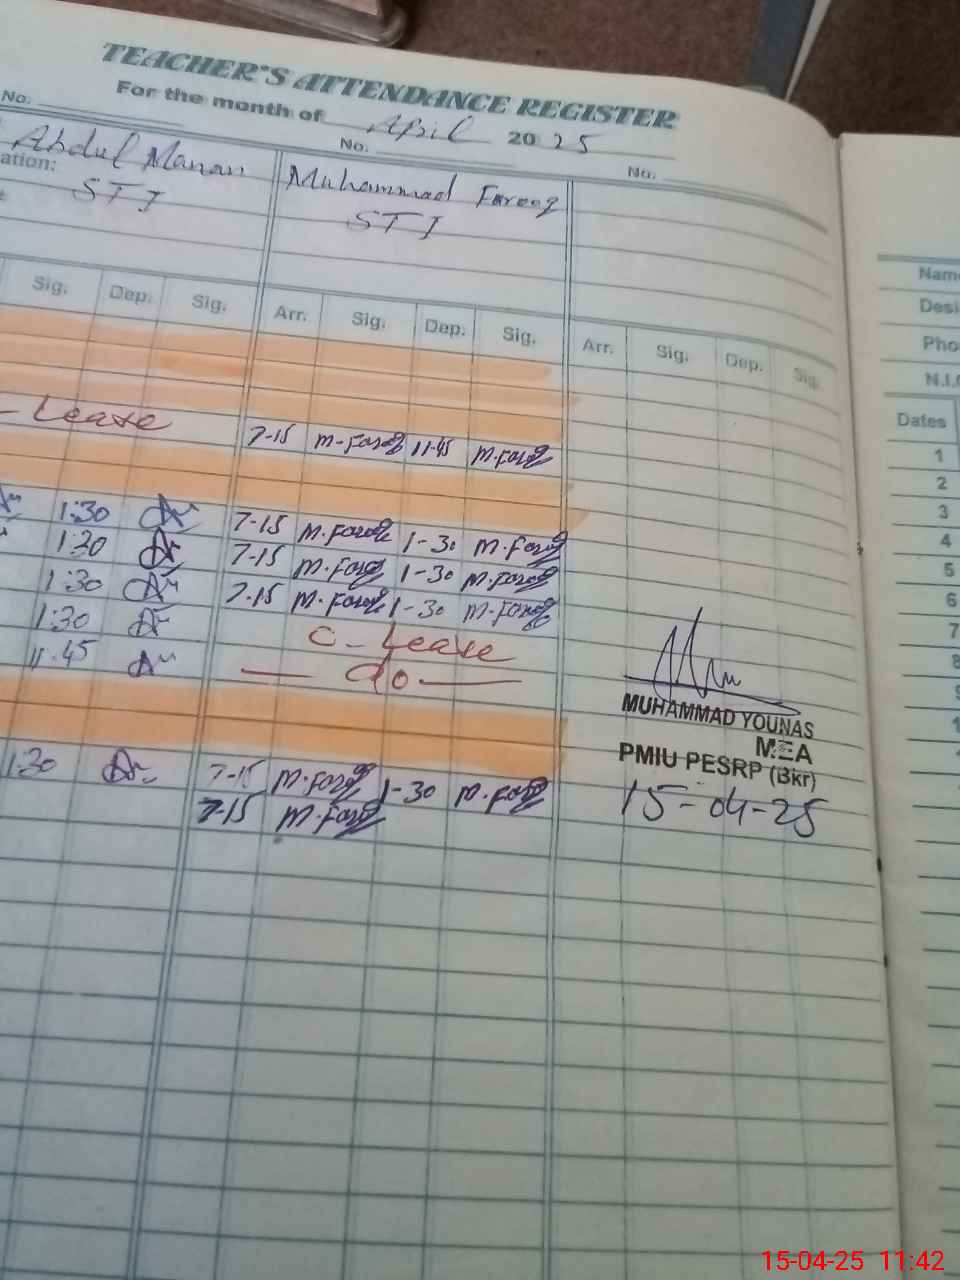 TEACHER'S ATTENDANCE REGISTER
For the month of April 2025
No. No. No.
Abdul Manan Muhammad Farooq
ation:
STI STI
Sig. Dep. Sig. Arr. Sig. Dep. Sig. Arr. Sig. Dep. Sig.
- Lease 7-15 M-Faroq 11-45 M.Faroq
1:30 7-15 M.Faroq 1-30 M.Faroq
1:30 7-15 M.Faroq 1-30 M.Faroq
1:30 7-15 M.Faroq 1-30 M.Faroq
1:30 C-Lease
11.45 — do —
1:30 7-15 M.Faroq 1-30 M.Faroq
7-15 M.Faroq
MUHAMMAD YOUNAS
MEA
PMIU PESRP (Bkr)
15-04-25
Name
Desi
Pho
N.I.
Dates
1
2
3
4
5
6
7
8
9
15-04-25 11:42